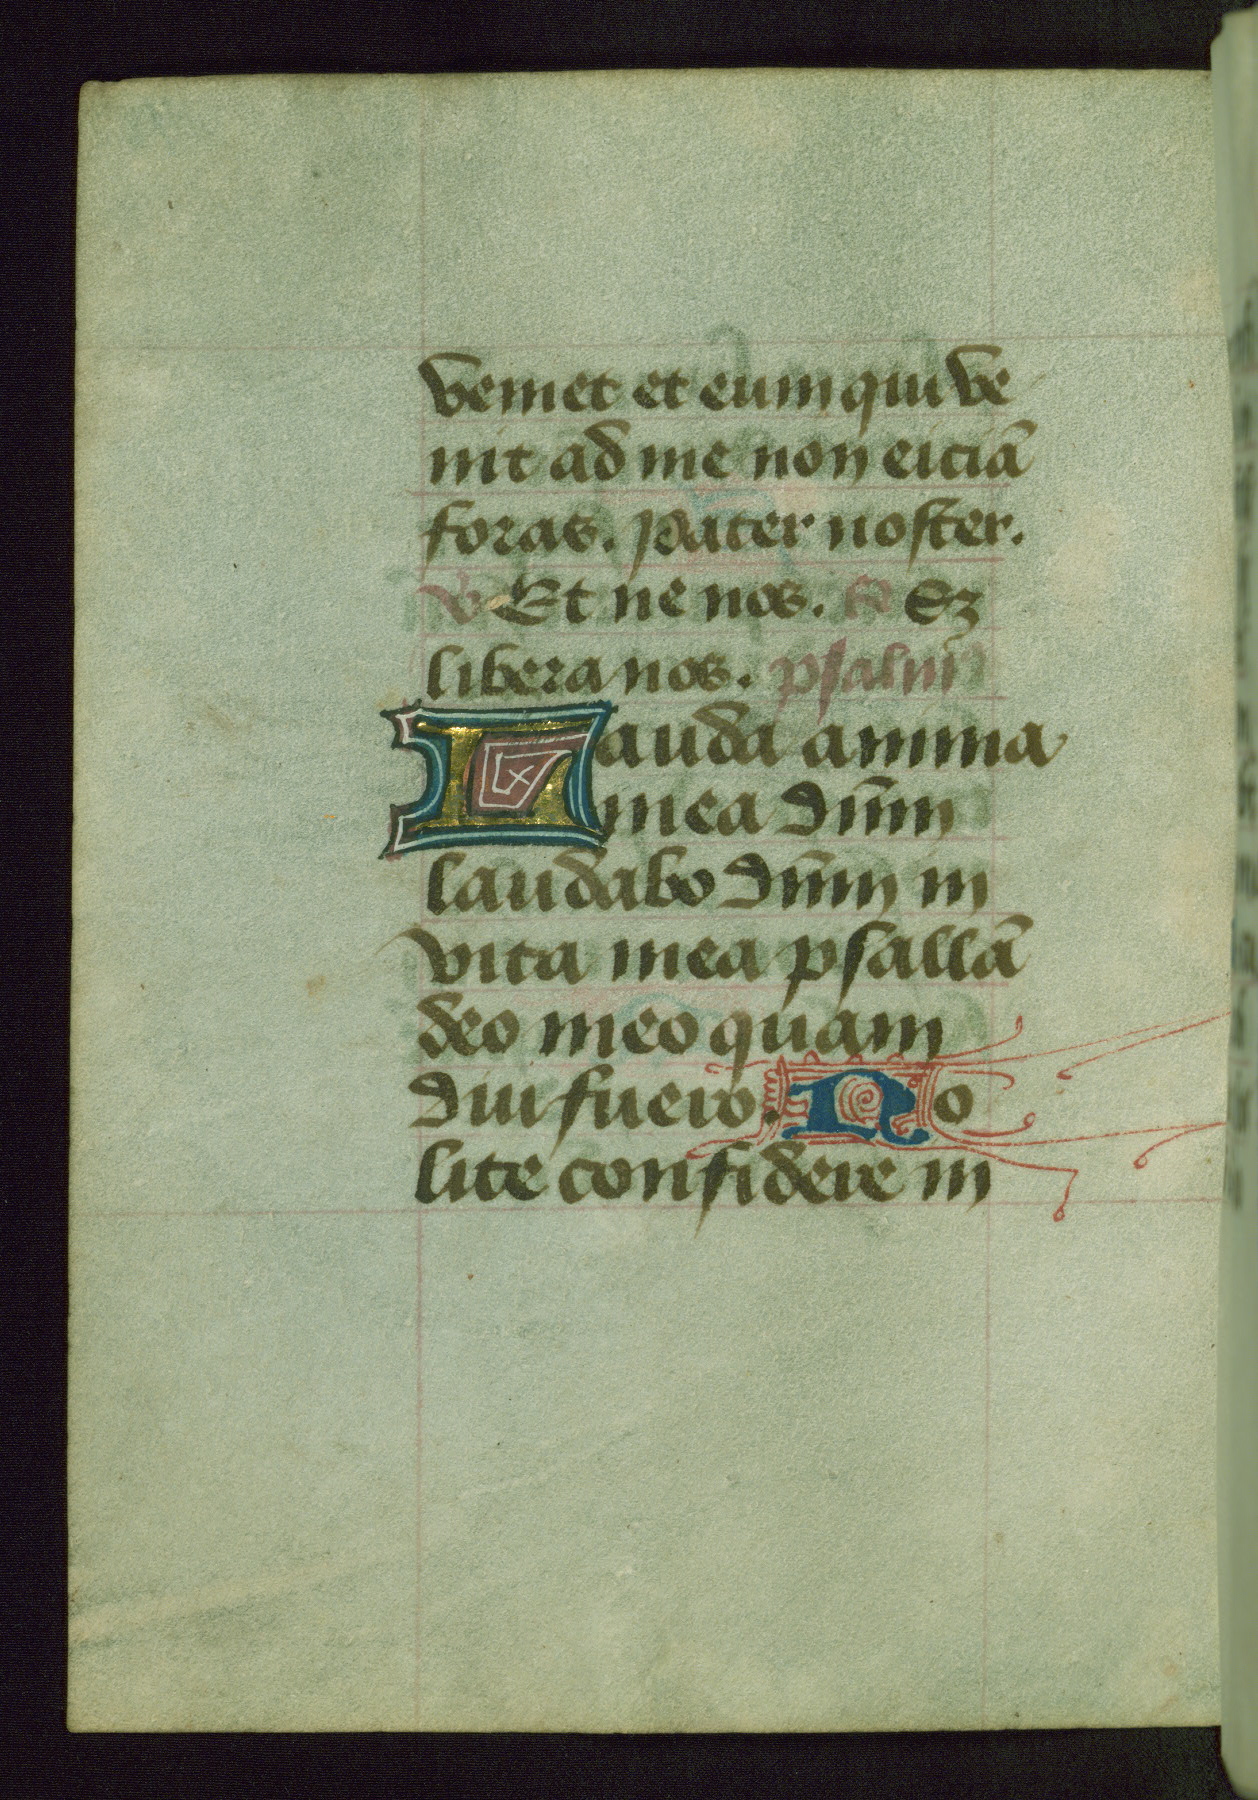 veniet et eum qui ve
nit ad me non eiciā
foras. Pater noster.
℣ Et ne nos. ℟ Sꝫ
libera nos. psalm̄
Lauda anima
mea dn̄m
laudabo dn̄m in
vita mea psallā
deo meo quam
diu fuero. No
lite confidere in